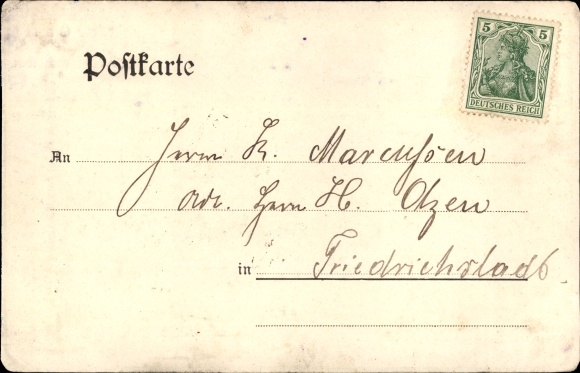 Postkarte
5 5
DEUTSCHES REICH
An Herrn K. Marcussen
Adr. Herrn H. Olzen
in Friedrichstadt